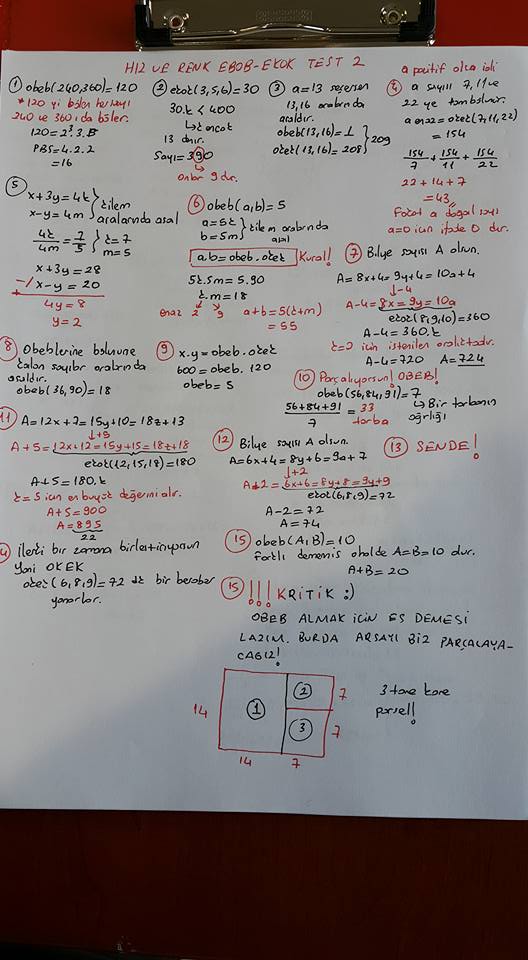 HIZ VE RENK EBOB-EKOK TEST 2
① obeb(240,360)=120
* 120 yi bölen her sayı
240 ve 360 ı da böler.
120=2³.3.5
PBS=4.2.2
=16
② ekok(3,5,6)=30
30.k < 400
↳ ençok
13 dür.
Sayı=390
Onlar 9 dur.
③ a=13 seçersen
13,16 aralarında
asaldır.
obeb(13,16)=1
okek(13,16)=208
209
a pozitif olsa idi
④ a sayısı 7,11 ve
22 ye tam bölünür.
a en az=okek(7,11,22)
=154
154/7 + 154/11 + 154/22
22+14+7
=43
Fakat a doğal sayı
a=0 için ifade 0 dır.
⑤ x+3y=4k
x-y=4m
k ilem
aralarında asal
4k/4m = 7/5
k=7
m=5
x+3y=28
-/ x-y=20
4y=8
y=2
⑥ obeb(a,b)=5
a=5k
b=5m
k ilem aralarında
asal
a.b=obeb.okek Kural!
5k.5m=5.90
k.m=18
en az 2 9 a+b=5(k+m)
=55
⑦ Bilye sayısı A olsun.
A=8x+4=9y+4=10z+4
↓-4
A-4=8x=9y=10z
ekok(8,9,10)=360
A-4=360.k
k=2 için istenilen aralıktadır.
A-4=720 A=724
⑧ Obeblerine bölününce
kalan sayılar aralarında
asaldır.
obeb(36,90)=18
⑨ x.y=obeb.okek
600=obeb.120
obeb=5
⑩ Parçalıyorsun! OBEB!
obeb(56,84,91)=7
↳ Bir torbanın
ağırlığı
56+84+91/7 = 33
torba
11 A=12x+7=15y+10=18z+13
↓+5
A+5=12x+12=15y+15=18z+18
ekok(12,15,18)=180
A+5=180.k
k=5 için en büyük değerini alır.
A+5=900
A=895
22
⑫ Bilye sayısı A olsun.
A=6x+4=8y+6=9z+7
↓+2
A+2=6x+6=8y+8=9y+9
ekok(6,8,9)=72
A-2=72
A=74
⑬ SENDE!
4 İleriki bir zamana birleştiriyorsun
Yani OKEK
okek(6,8,9)=72 dk bir beraber
yanarlar.
⑮ obeb(A,B)=10
farklı dememiş o halde A=B=10 dur.
A+B=20
⑮ !!! KRİTİK :)
OBEB ALMAK İÇİN EŞ DEMESİ
LAZIM. BURDA ARSAYI BİZ PARÇALAYA-
CAĞIZ!
14 ① ② 7
③ 7
14 7
3 tane kare
parsel!